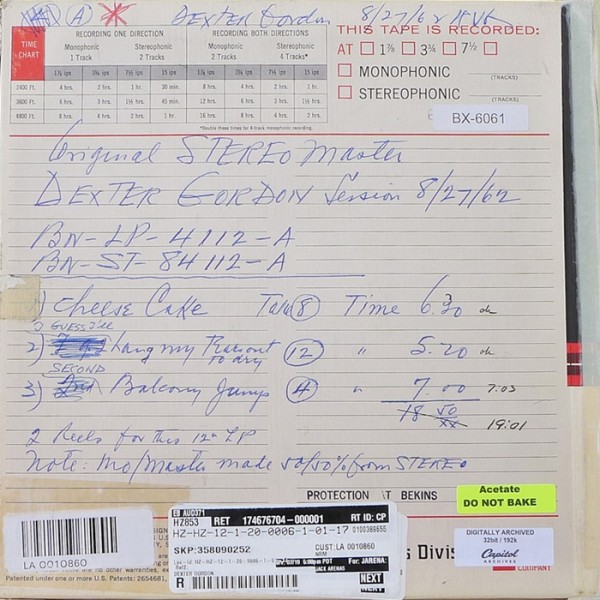 (A) * DEXTER Gordon 8/27/62 RVG
THIS TAPE IS RECORDED:
AT 1⅞ 3¾ 7½
MONOPHONIC (TRACKS)
STEREOPHONIC (TRACKS)
TIME CHART
RECORDING ONE DIRECTION RECORDING BOTH DIRECTIONS
Monophonic 1 Track Stereophonic 2 Tracks Monophonic 2 Tracks Stereophonic 4 Tracks*
7½ ips 15 ips 7½ ips 15 ips
2400 Ft. 4 hrs. 2 hrs. 1 hr. 30 min. 8 hrs. 4 hrs. 2 hrs. 1 hr.
3600 Ft. 6 hrs. 3 hrs. 1½ hrs. 45 min. 12 hrs. 6 hrs. 3 hrs. 1½ hrs.
4800 Ft. 8 hrs. 4 hrs. 2 hrs. 1 hr. 16 hrs. 8 hrs. 4 hrs. 2 hrs.
*Double these times for 4-track monophonic recording.
BX-6061
Original STEREO Master
DEXTER GORDON Session 8/27/62
BN-LP-4112-A
BN-ST-84112-A
1) Cheese Cake Take 8 Time 6.30 ok
GUESS I'LL
2) hang my Tears out to dry 12 " 5.20 ok
SECOND
3) Balcony Jump 4 " 7.00 7:03
18 50 19:01
2 Reels for this 12" LP
Note: Mo/Master made 50/50% from STEREO
PROTECTION AT BEKINS
Acetate
DO NOT BAKE
DIGITALLY ARCHIVED
32bit / 192k
Capitol
ARCHIVES
s Divis
COMPANY
LA 0010860
Patented under one or more U.S. Patents: 2654681,
HZ853 RET 174676704-000001 RT ID: CP
HZ-HZ-12-1-20-0006-1-01-17 0100386655
SKP:358090252 CUST:LA 0010860
5:00pm PDT For: JARENA
JACK ARENAS
DEXTER GORDON
R NEXT NEXT